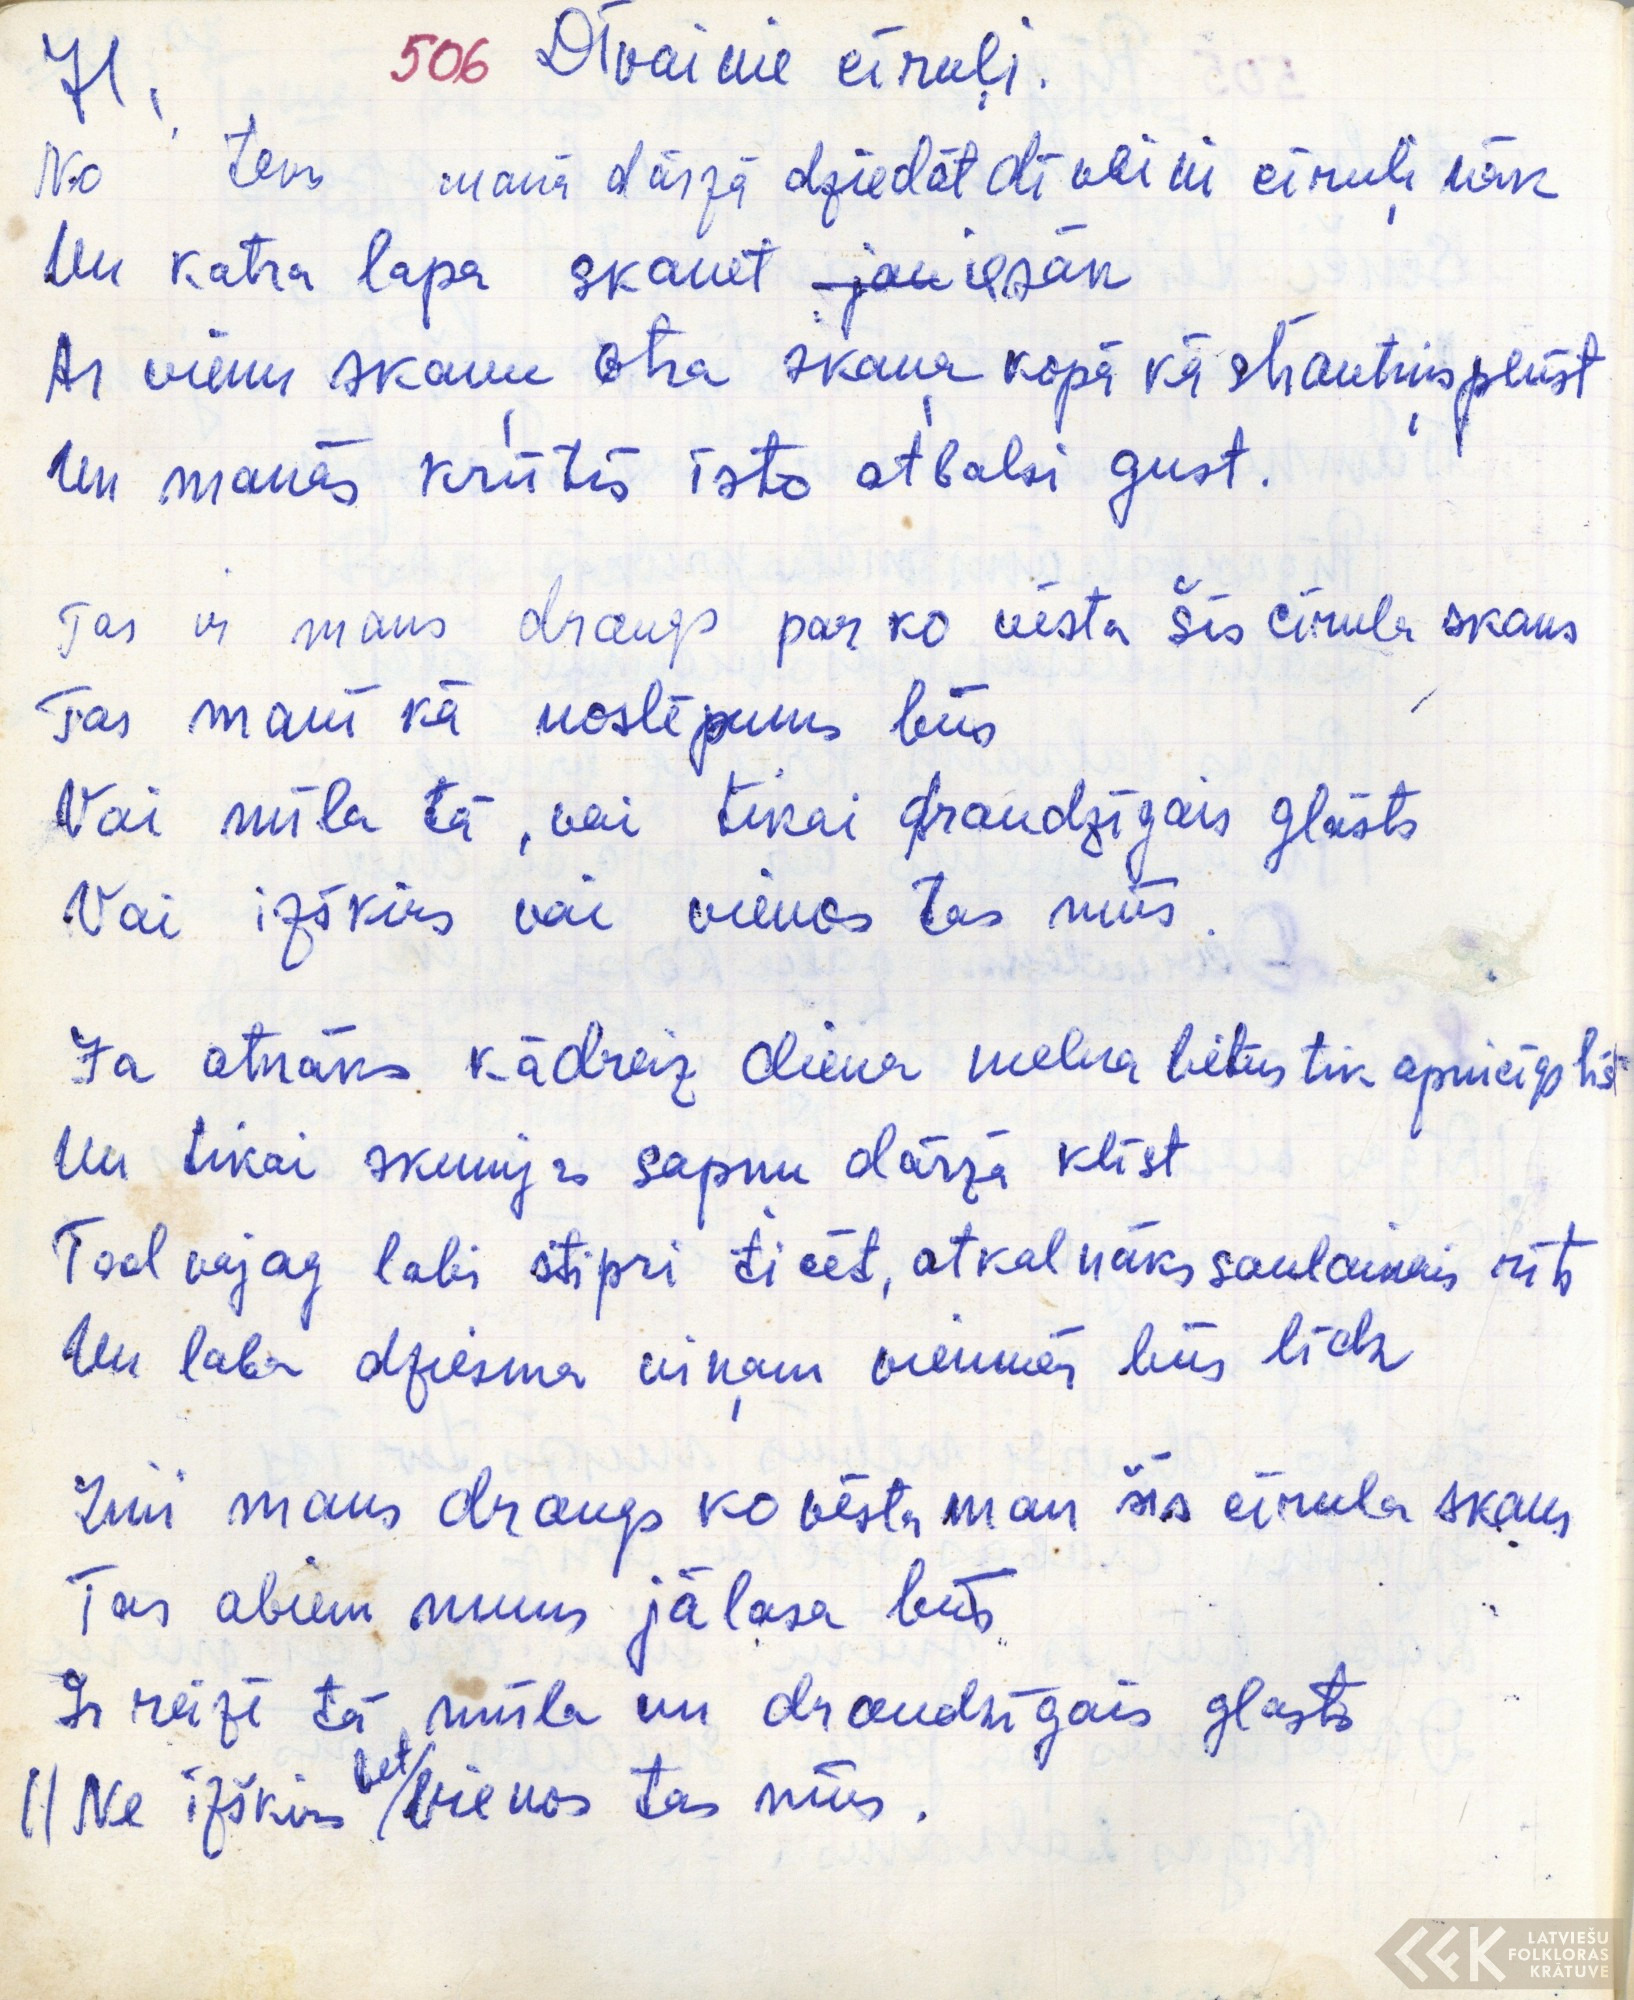 71. 506 Dīvainie cīruļi.
No tevs manā dārzā dziedāt dīvaini cīruļi nāk
Un katra lapa skanēt jau iesāk
Ar vienu skaņu otra skaņa kopā kā strautiņš plūst
Un manās krūtīs īsto atbalsi gust.
Tas ir mans draugs par ko vēsta šīs cīruļa skaņs
Tas manī kā noslēpums būs
Vai mīla tā, vai tikai draudzīgais glāsts
Vai izšķirs vai vienos tas mūs.
Ja atnāks kādreiz diena melna lietus tik apnicīgs līst
Un tikai skumjas sapņu dārzā klīst
Tad vajag labi stipri ticēt, atkal nāks saulainais rīts
Un laba dziesma viņam vienmēr būs līdz
Zini mans draugs ko vēsta man šīs cīruļa skaņs
Tas abiem mums jālasa būs
Ir reizē tā mīla un draudzīgais glasts
// Ne izšķirs bet/vienos tas mūs.
LATVIEŠU
FOLKLORAS
KRĀTUVE